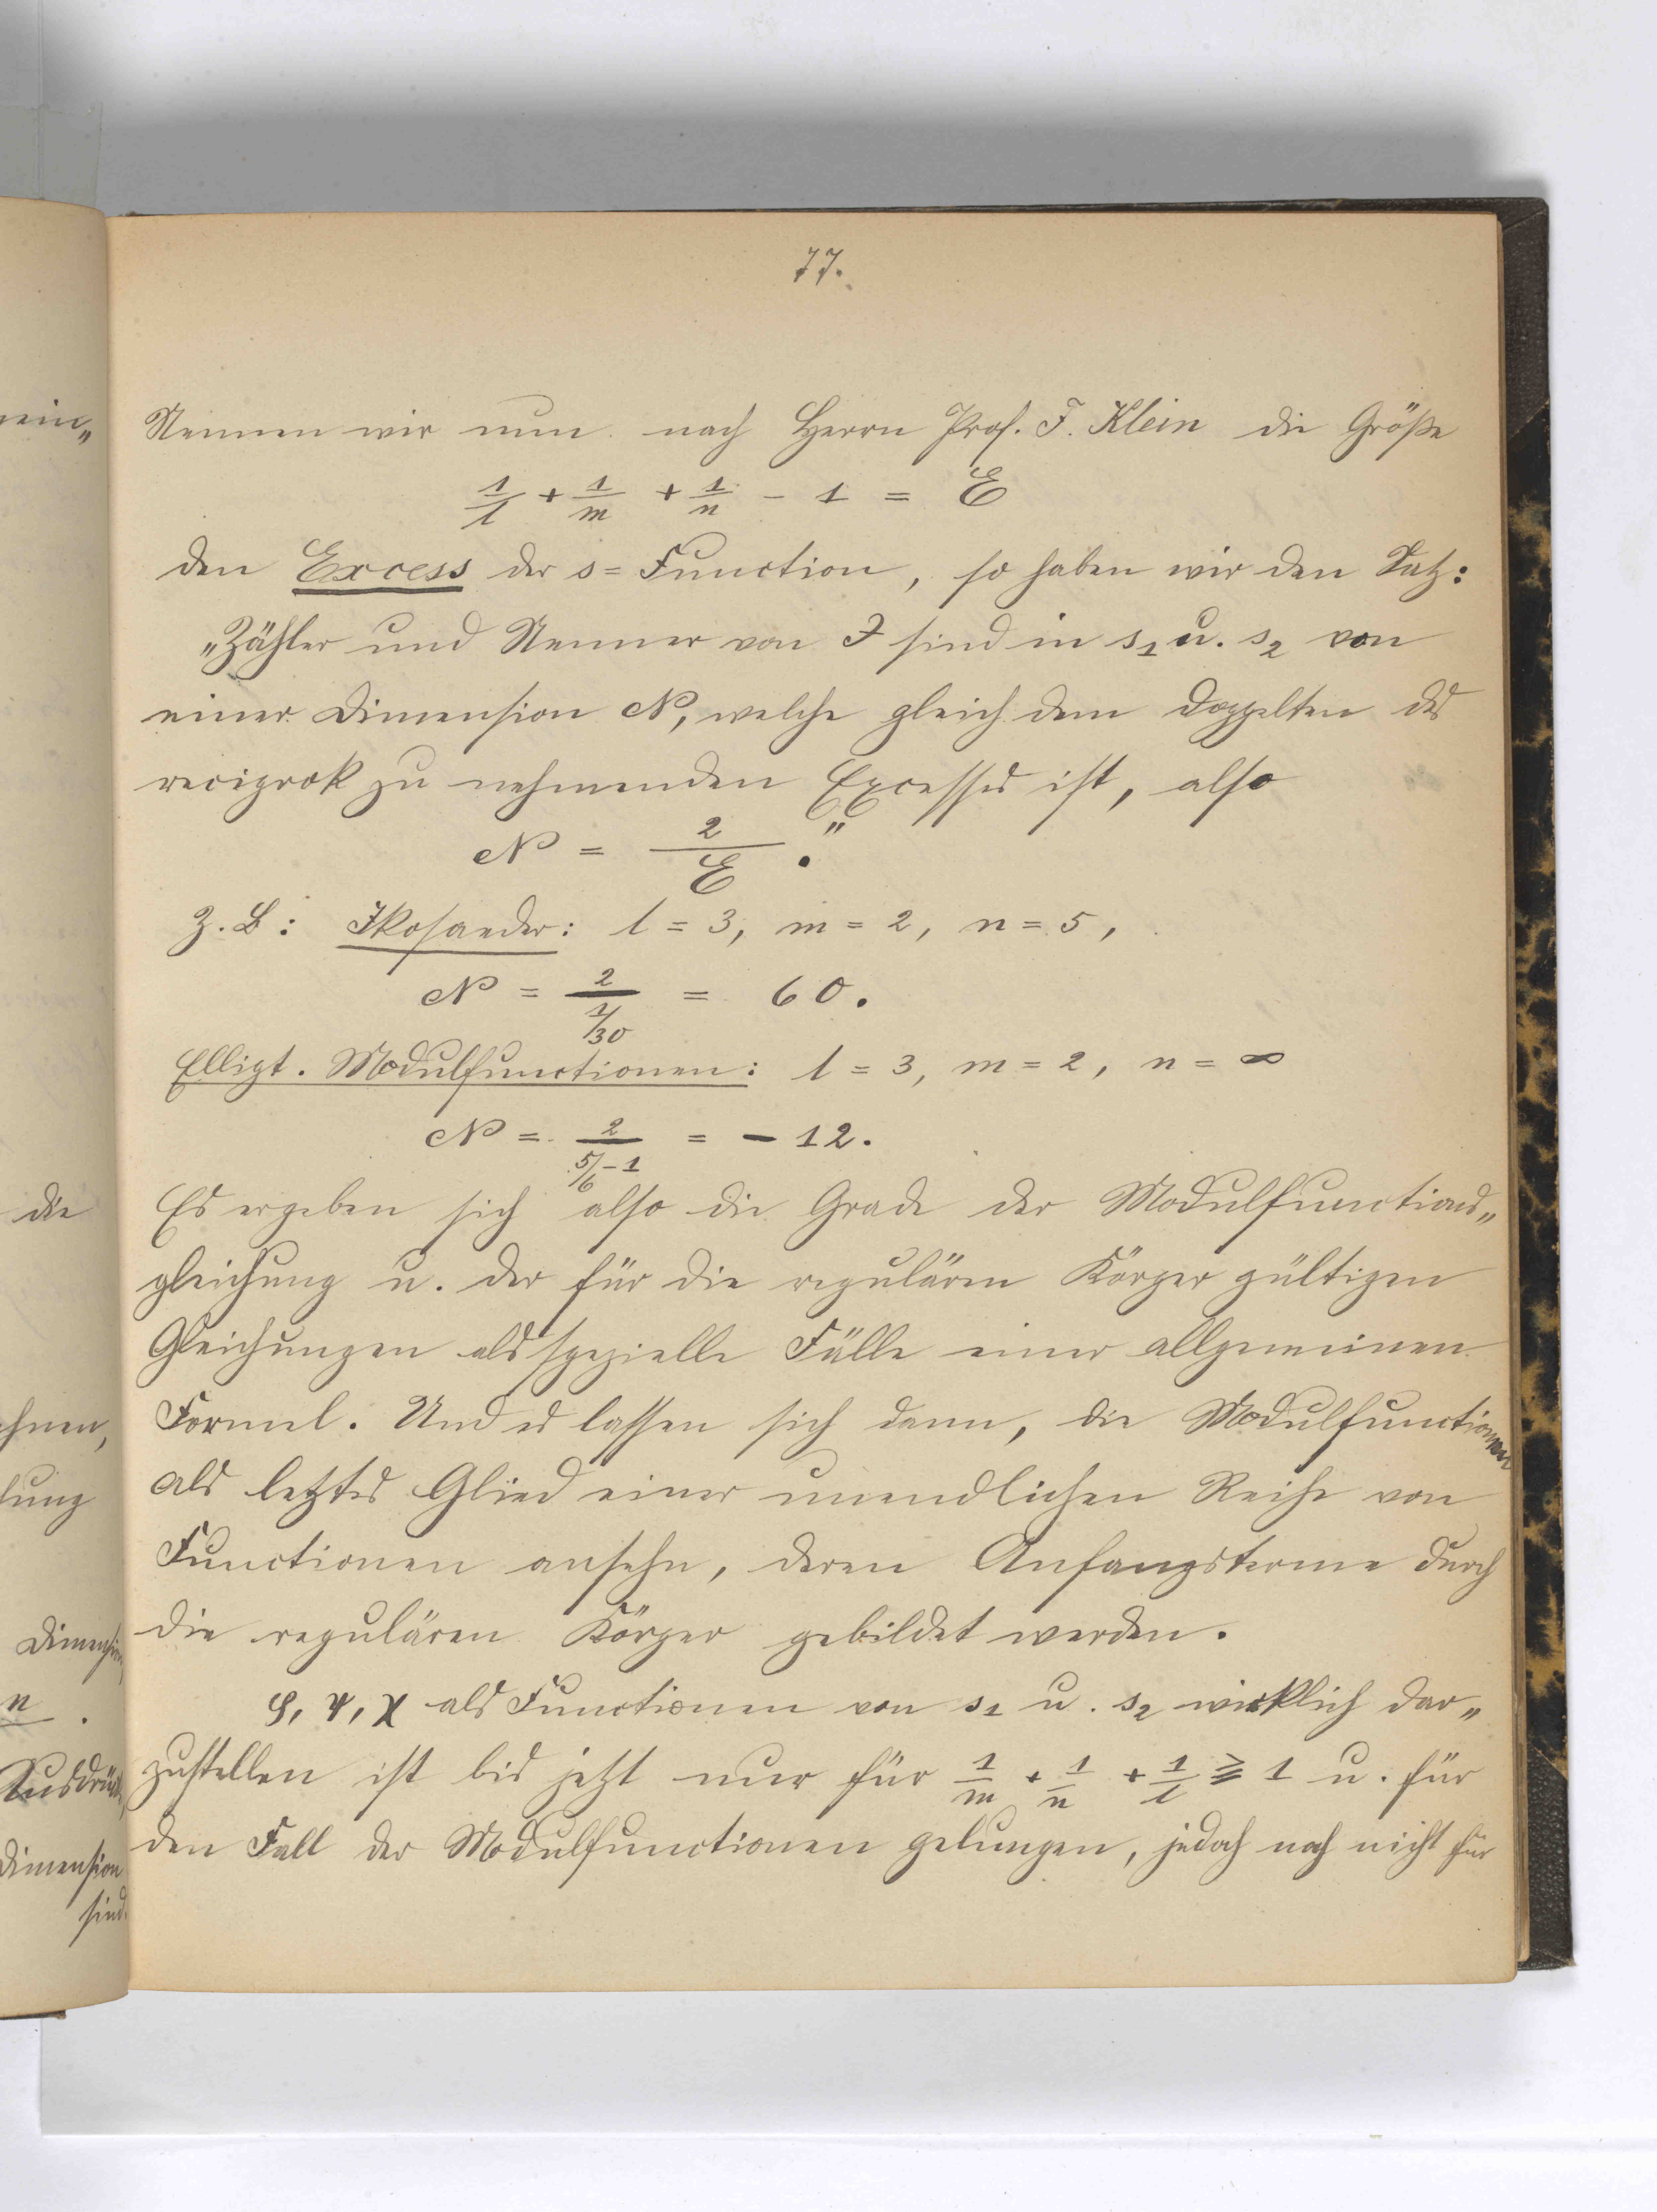 77.
Nennen wir nun nach Herrn Prof. F. Klein die Größe
1/l + 1/m + 1/n - 1 = E
den Excess der s=Function, so haben wir den Satz:
„Zähler und Nenner von J sind in s₁ u. s₂ von
einer Dimension N, welche gleich dem Doppelten des
reciprok zu nehmenden Excesses ist, also
N = 2/E."
Z. B: Ikosaeder: l = 3, m = 2, n = 5,
N = 2/(1/30) = 60.
Ellipt. Modulfunctionen: l = 3, m = 2, n = ∞
N = 2/(5/6-1) = -12.
Es ergeben sich also die Grade der Modulfunctions„
gleichung u. der für die regulären Körper gültigen
Gleichungen als spezielle Fälle einer allgemeinen
Formel. Und es lassen sich dann, die Modulfunctionen
als letztes Glied einer unendlichen Reihe von
Functionen ansehn, deren Anfangsterme durch
die regulären Körper gebildet werden.
φ, ψ, χ als Functionen von s₁ u. s₂ wirklich dar„
zustellen ist bis jetzt nur für 1/m + 1/n + 1/l ≧ 1 u. für
den Fall der Modulfunctionen gelungen, jedoch noch nicht für
die
Dimension
n
Dimension
sind